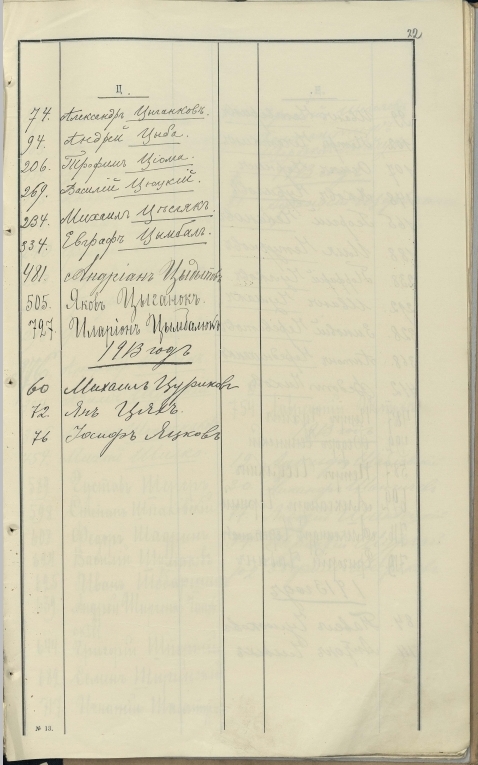 22
Ц.
74. Александръ Цыганковъ.
94. Андрей Цыба.
206. Трофимъ Цюма.
269. Василій Цюцкій.
234. Михаилъ
334. Евграфъ Цымбалъ.
481. Андріанъ
505. Яковъ Цыганокъ.
727. Иларіонъ Цымбалюкъ
1913 годъ
60 Михаилъ Цуриковъ
72. Янъ
76 Іосифъ Яцковъ
№ 13.